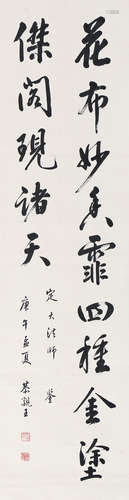 花布妙香霏四種金塗
傑閣現諸天
定大法師 鉴
庚午孟夏 恭親王